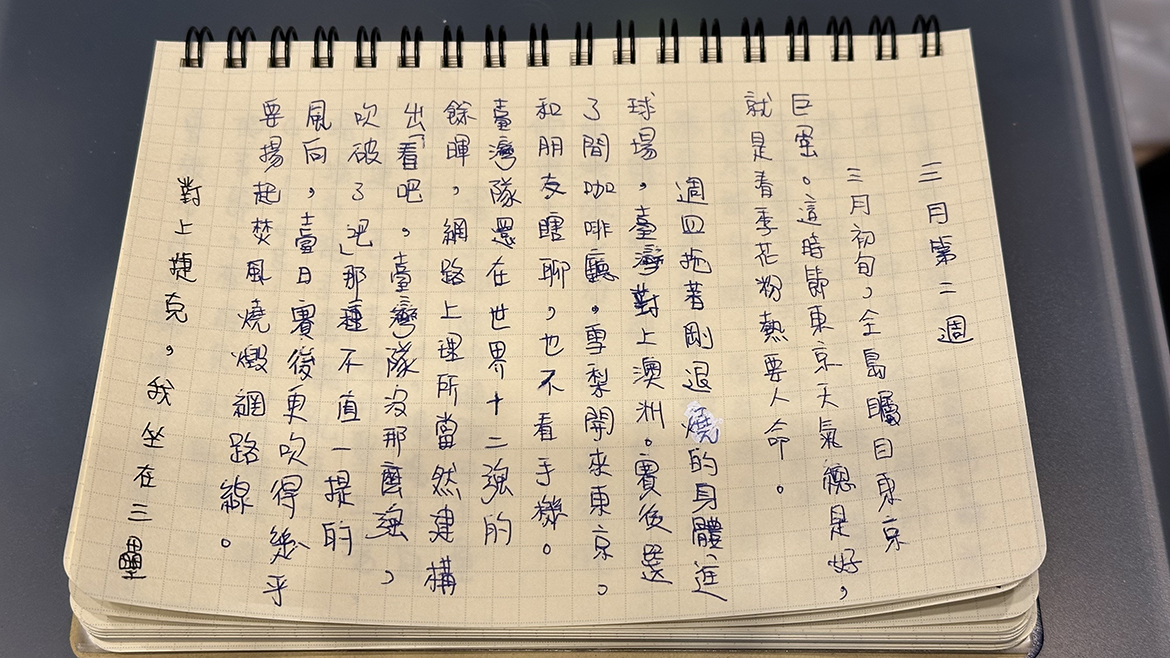 三月第二週
三月初旬，全島矚目東京
巨蛋。這時節東京天氣總是好，
就是春季花粉熱要人命。
週四拖著剛退燒的身體進
球場，臺灣對上澳洲。賽後選
了間咖啡廳。雪梨開來東京。
和朋友瞎聊，也不看手機。
臺灣隊還在世界十二強的
餘暉，網路上理所當然建構
出「看吧，臺灣隊沒那麼強，
吹破了吧」那種不值一提的
風向，臺日賽後更吹得幾乎
要揚起焚風燒燬網路線。
對上捷克，我坐在三壘